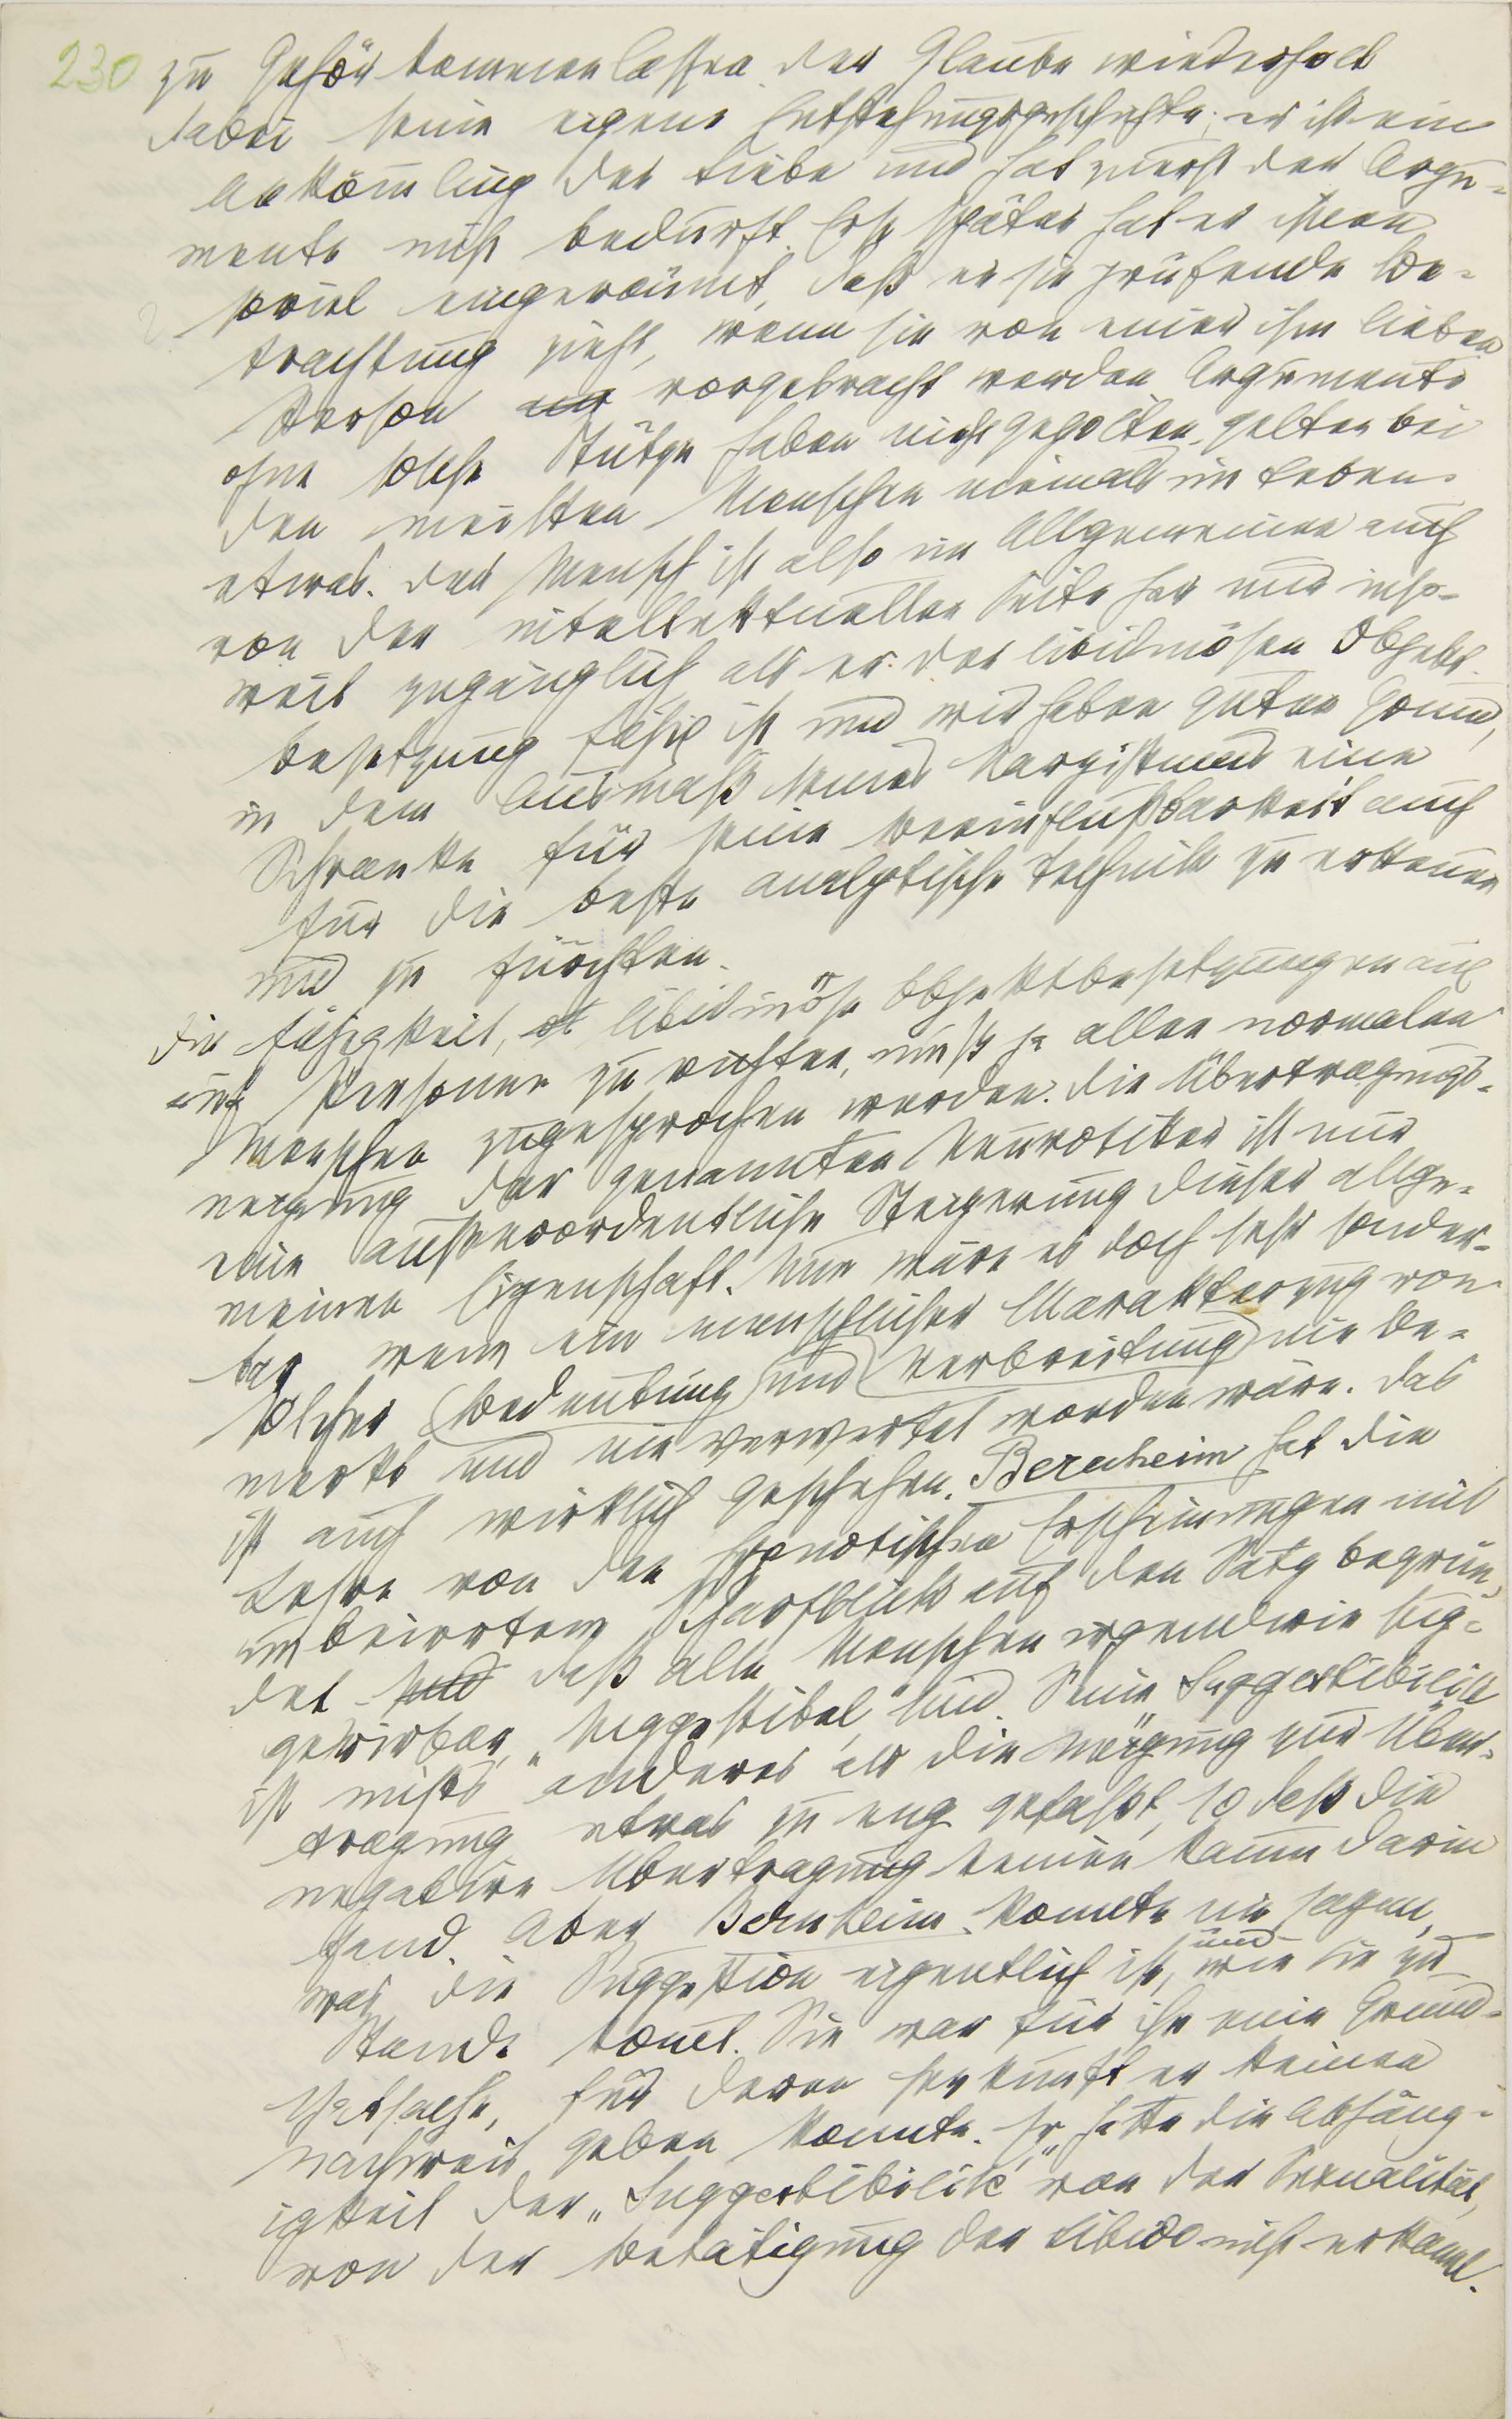 230 zu Gehör kommen lassen. Der Glaube wiederholt
dabei seine eigene Entstehungsgeschichte; er ist ein
Abkömling der Liebe und hat zuerst der Argu-
mente nicht bedurft. Erst später hat er ihnen
soviel eingeräumt, daß er sie prüfende Be-
trachtung zieht, wenn sie von einer ihm lieben
Person vorgebracht werden. Argumente
ohne solche Stütze haben nicht gegolten, gelten bei
den meisten Menschen niemals im Leben
etwas. Der Mensch ist also im Allgemeinen auch
von der intellektuellen Seite her nur inso-
weit zugänglich als er der libidinösen Objekt-
besetzung fähig ist und wir haben guten Grund,
in dem Ausmaß seines Narzißmus eine
Schranke für seine Beeinflußbarkeit auch
für die beste analytische Technik zu erkennen
und zu fürchten.
Die Fähigkeit, libidinöse Objektbesetzungen auch
auf Personen zu richten, muß ja allen normalen
Menschen zugesprochen werden. Die Übertragungs-
neigung der genannten Neurotiker ist nur
eine außerordentliche Steigerung dieser allge-
meinen Eigenschaft. Nun wäre es doch sehr sonder-
bar wenn ein menschlicher Charakterzug von
solcher Bedeutung und Verbreitung nie be-
merkt und nie verwertet worden wäre. Das
ist auch wirklich geschehen. Bernheim hat die
Lehre von den hypnotischen Erscheinungen mit
unbeirrtem Scharfblick auf den Satz begrün-
det daß alle Menschen irgendwie sug-
gerirbar, „suggestibel“ sind. Seine „Suggestibilität“
ist nichts anderes als die Neigung zur Über-
tragung, etwas zu eng gefaßt, so daß die
negative Übertragung keinen Raum darin
fand. Aber Bernheim konnte nie sagen,
was die Suggestion eigentlich ist, und wie sie zu
Stande kommt. Sie war für ihn eine Grund-
thatsache, für deren Herkunft er keinen
Nachweis geben konnte. Er hatte die Abhäng-
igkeit der „Suggestibilité“ von der Sexualität,
von der Betätigung der Libido nicht erkannt.